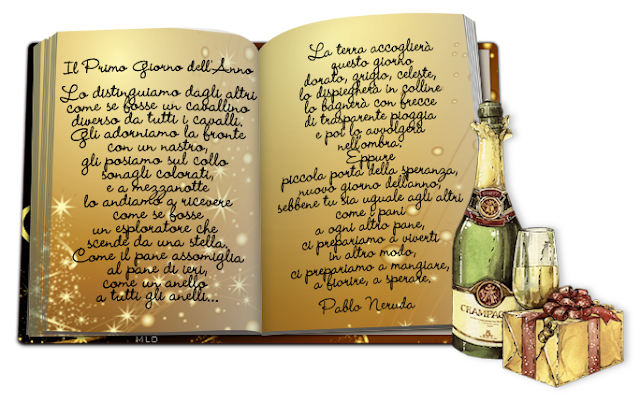 Il Primo Giorno dell'Anno
Lo distinguiamo dagli altri
come se fosse un cavallino
diverso da tutti i cavalli.
Gli adorniamo la fronte
con un nastro,
gli posiamo sul collo
sonagli colorati,
e a mezzanotte
lo andiamo a ricevere
come se fosse
un esploratore che
scende da una stella.
Come il pane assomiglia
al pane di ieri,
come un anello
a tutti gli anelli...
MLD
La terra accoglierà
questo giorno
dorato, grigio, celeste,
lo dispiegherà in colline
lo bagnerà con frecce
di trasparente pioggia
e poi lo avvolgerà
nell'ombra.
Eppure
piccola porta della speranza,
nuovo giorno dell'anno,
sebbene tu sia uguale agli altri
come i pani
a ogni altro pane,
ci prepariamo a viverti
in altro modo,
ci prepariamo a mangiare,
a fiorire, a sperare.
Pablo Neruda
CHAMPAGNE